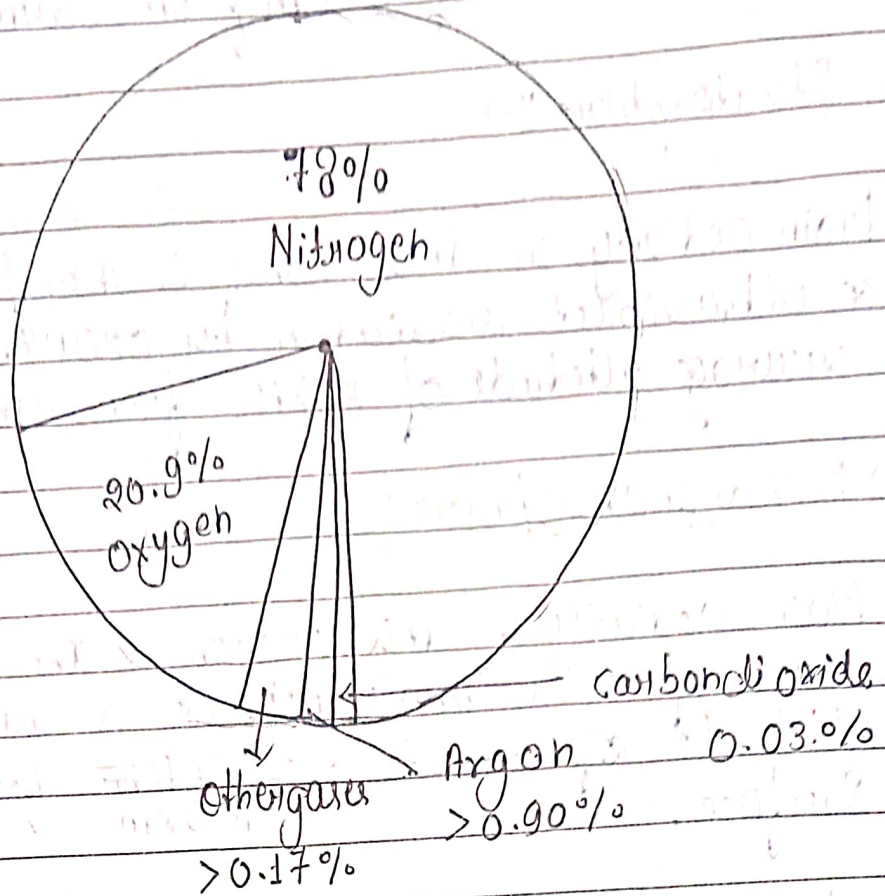 78%
Nitrogen
20.9%
oxygen
carbondioxide
0.03.%
Argon
>0.90%
othergases
>0.17%